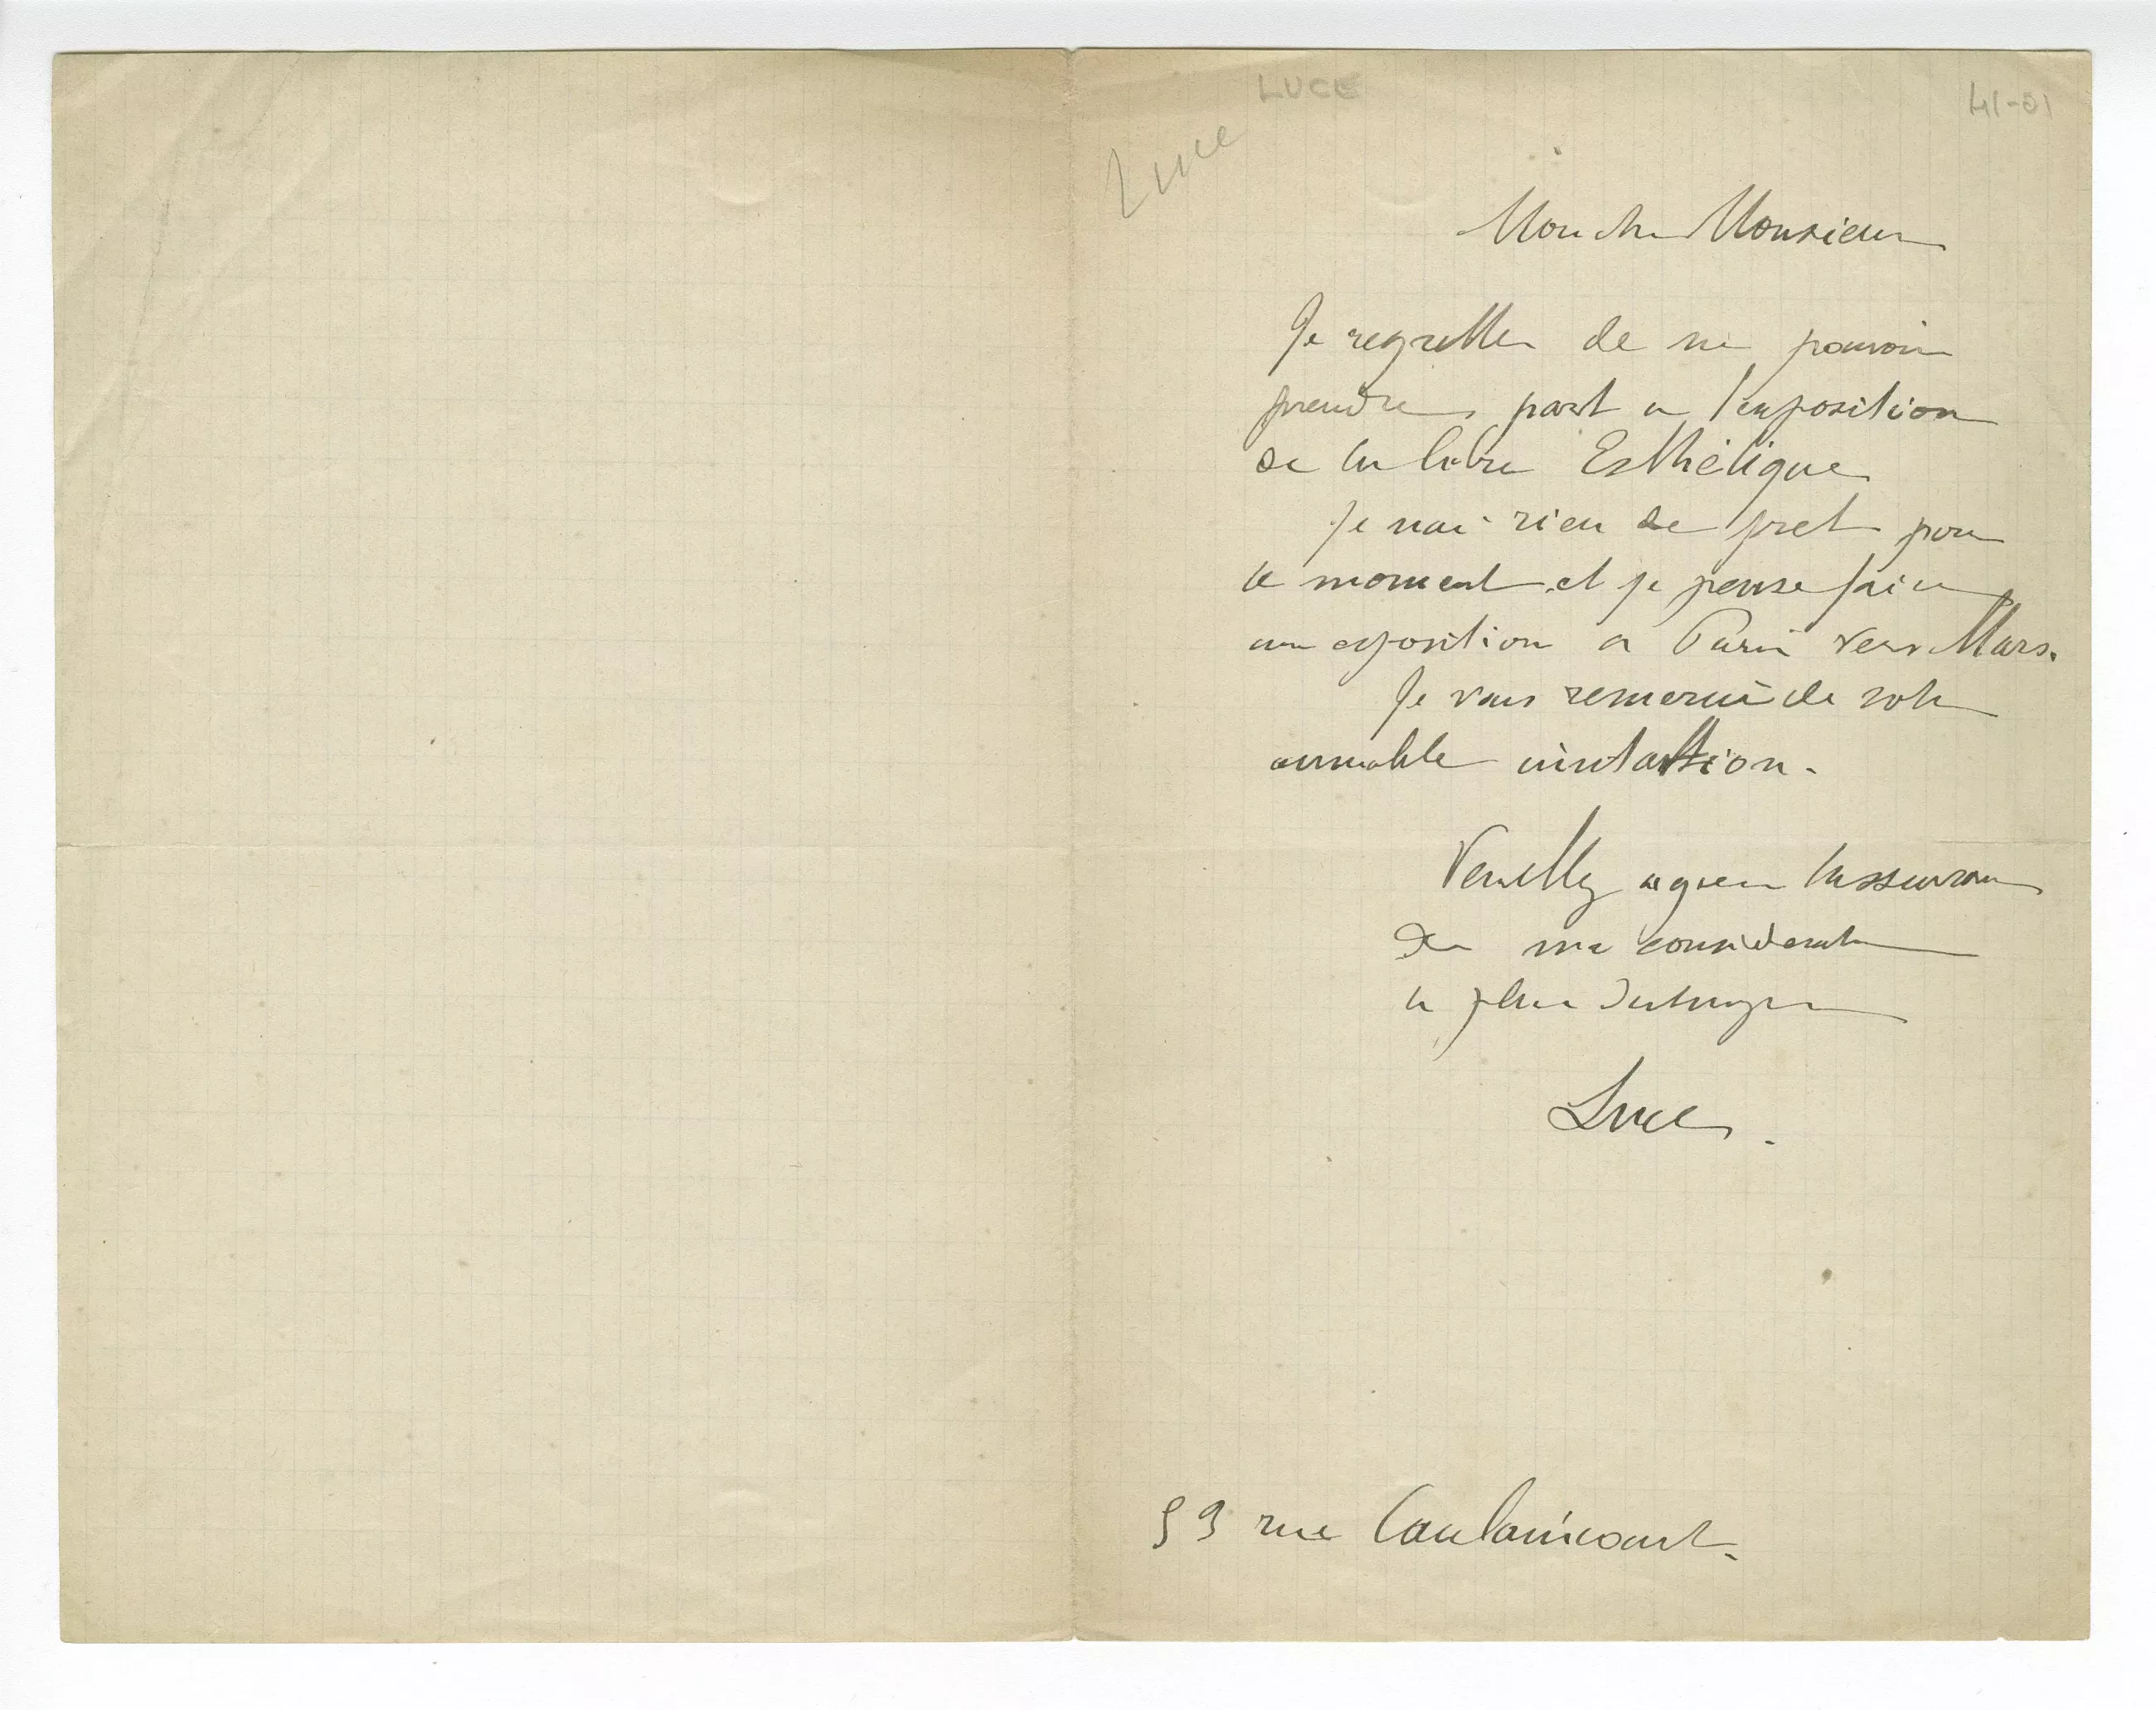 LUCE
41-01
Luce
Mon cher Monsieur
Je regrette de ne pouvoir
prendre part a l'exposition
de la libre Esthétique
Je nai rien de pret pour
le moment et je pense faire
une exposition a Paris vers Mars.
Je vous remercie de votre
aimable invitation.
Veuillez agreer lassurance
de ma consideration
la plus distinguée
Luce.
59 rue Caulaincourt.